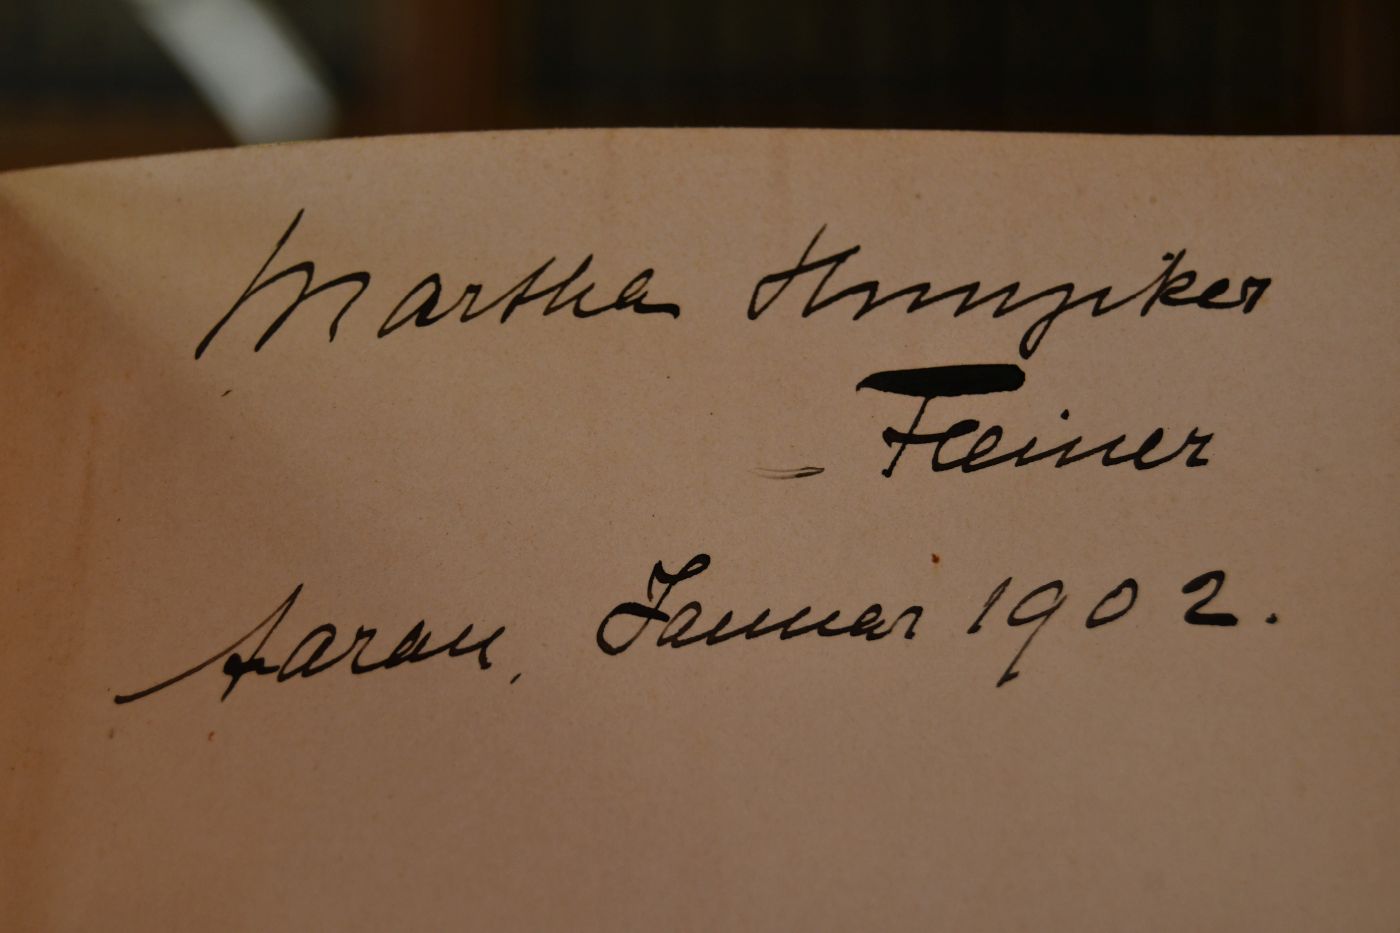 Martha Hunziker
Fleiner
Aarau, Januar 1902.